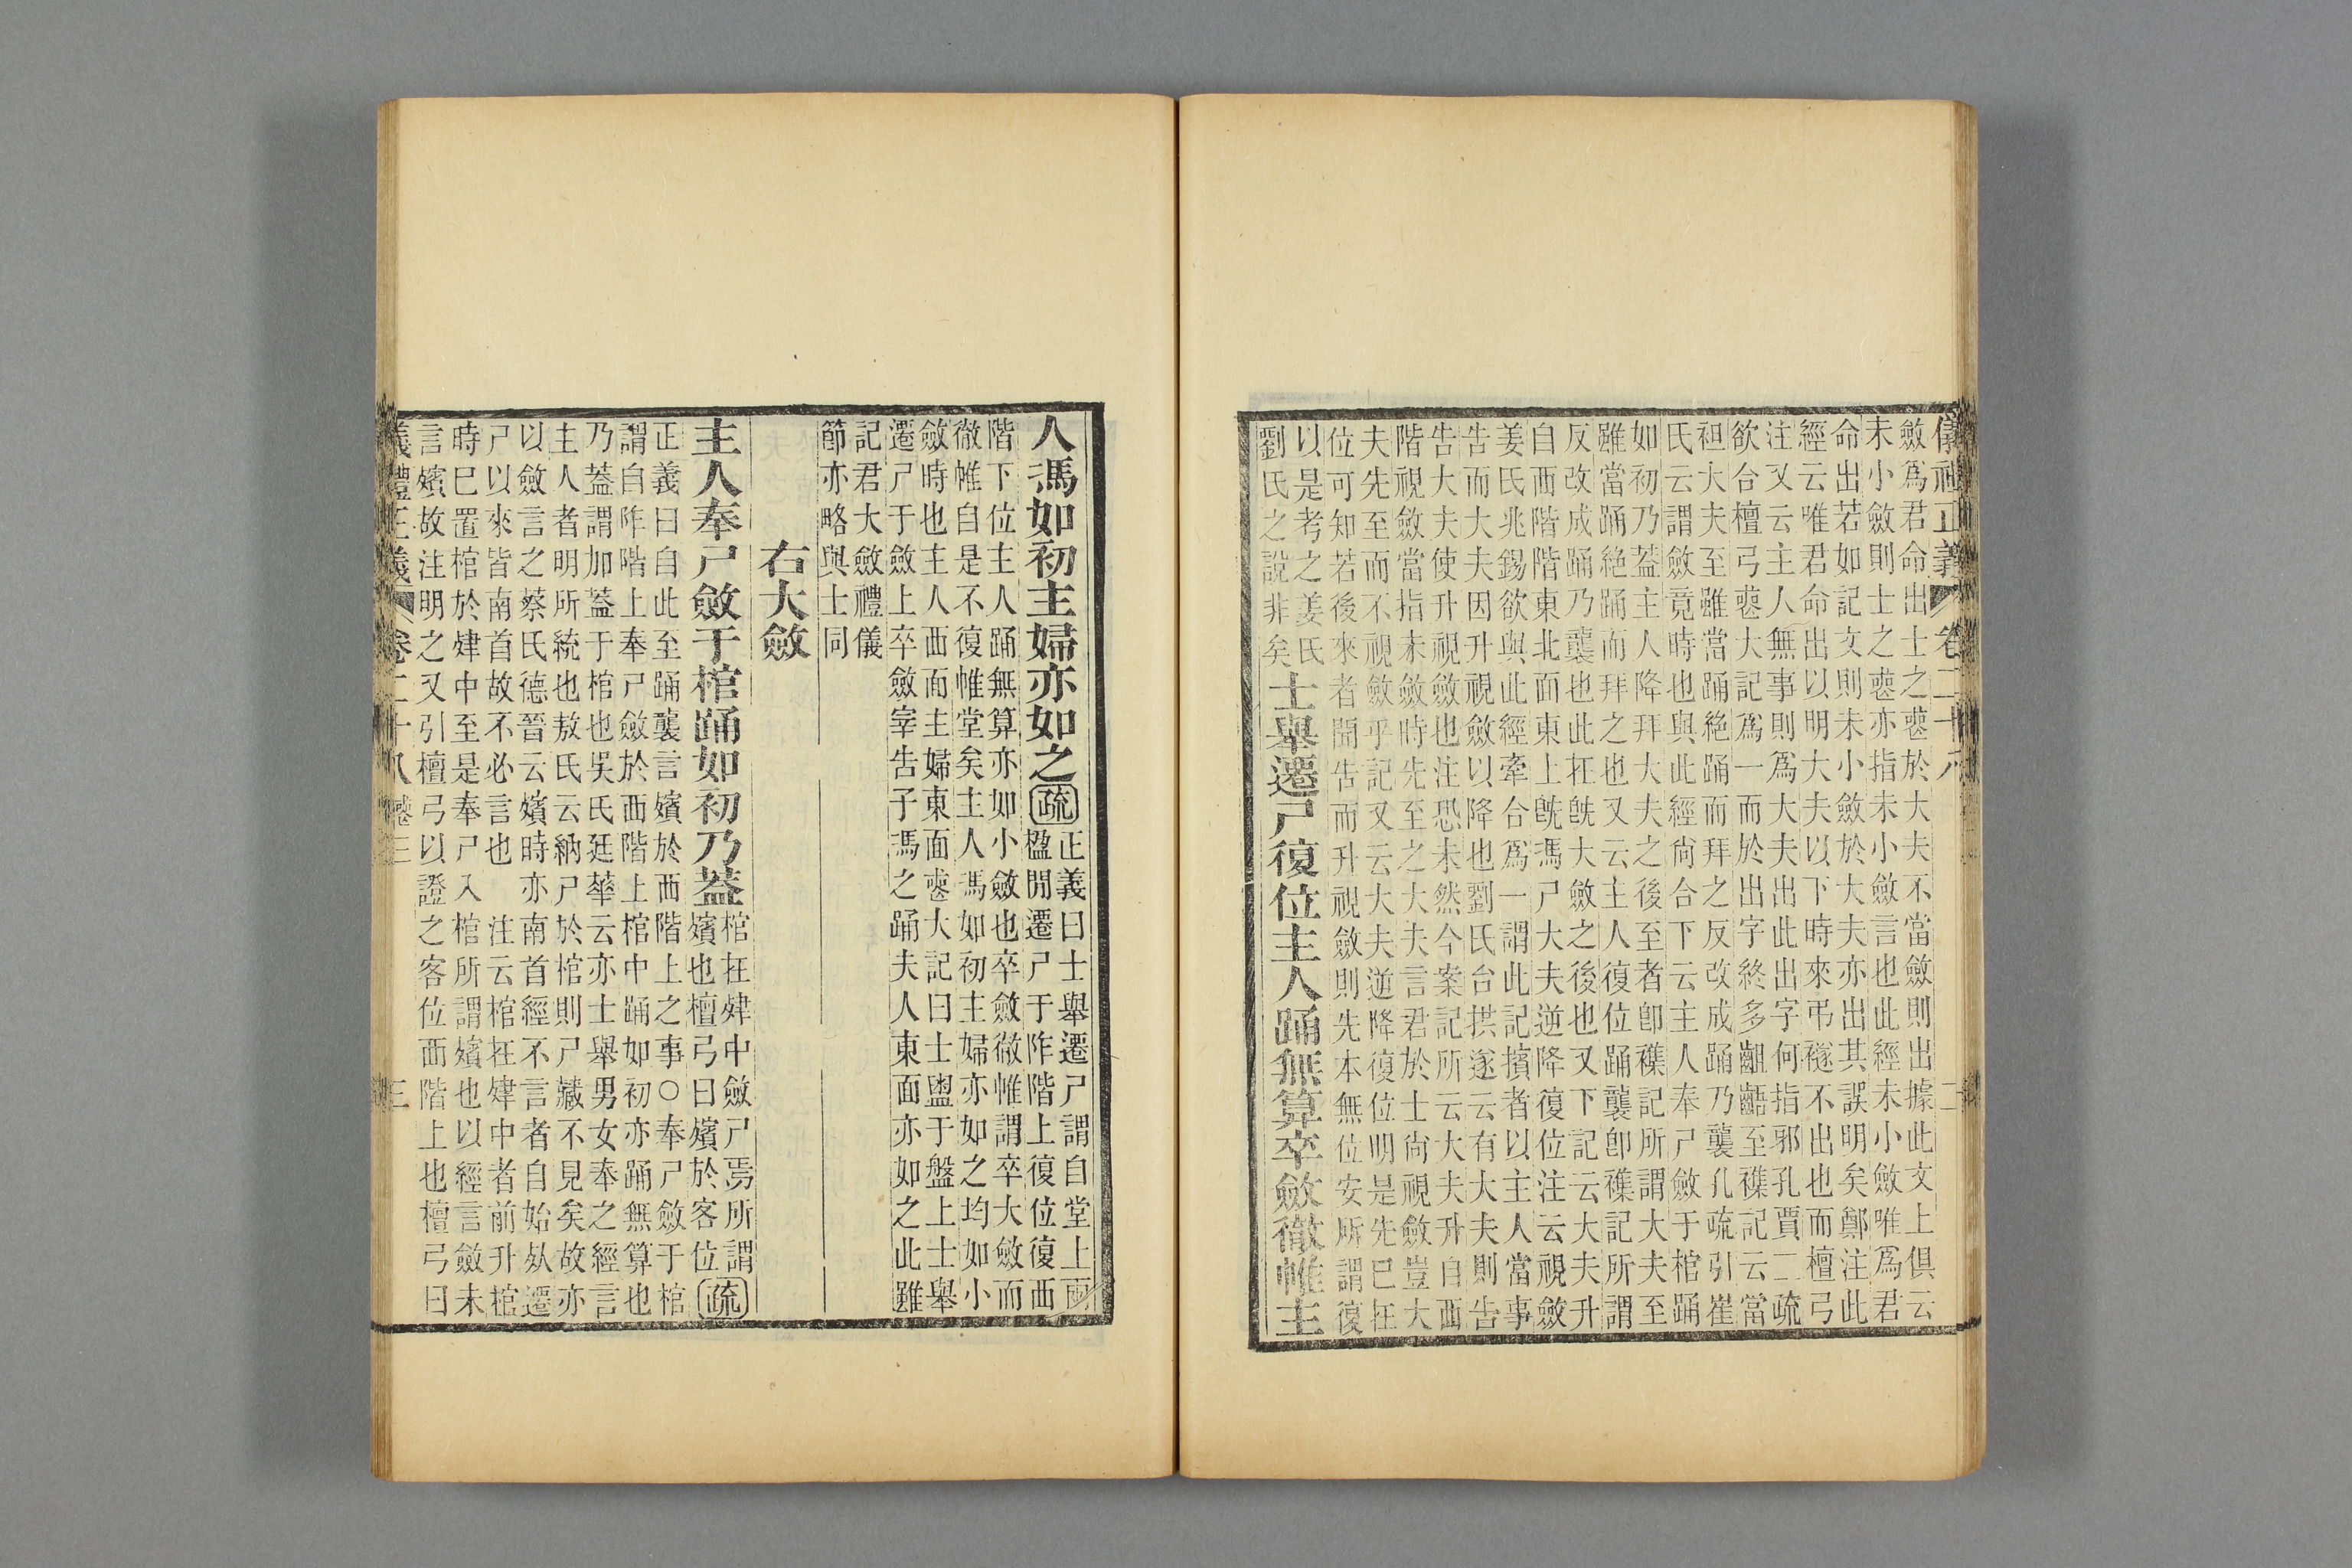 儀禮正義 卷二十八 二
斂爲君命出士之䘮於大夫不當斂則出據此文上俱云
未小斂則士之䘮亦指未小斂言也此經未小斂唯爲君
命出若如記文則未小斂於大夫亦出其誤明矣鄭注此
經云唯君命出以明大夫以下時來弔襚不出也而檀弓
注又云主人無事則爲大夫出此出字何指邪孔賈二疏
欲合檀弓䘮大記爲一而於出字終多齟齬至襍記云當
袒大夫至雖當踊絶踊而拜之反改成踊乃襲孔疏引崔
氏云謂斂竟時也與此經尙合下云主人奉尸斂于棺踊
如初乃葢主人降拜大夫之後至者卽襍記所謂大夫至
雖當踊絶踊而拜之也又云主人復位踊襲卽襍記所謂
反改成踊乃襲也此在旣大斂之後也又下記云大夫升
自西階階東北面東上旣馮尸大夫逆降復位注云視斂
姜氏兆錫欲與此經牽合爲一謂此記擯者以主人當事
告而大夫因升視斂以降也劉氏台拱遂云有大夫則告
告大夫使升視斂也注恐未然今案記所云大夫升自西
階視斂當指未斂時先至之大夫言君於士尙視斂豈大
夫先至而不視斂乎記又云大夫逆降復位明是先已在
位可知若後來者聞告而升視斂則先本無位安所謂復
以是考之姜氏
劉氏之說非矣士舉遷尸復位主人踊無算卒斂徹帷主
人馮如初主婦亦如之疏正義曰士舉遷尸謂自堂上兩
楹閒遷尸于阼階上復位復西
階下位主人踊無算亦如小斂也卒斂徹帷謂卒大斂而
徹帷自是不復帷堂矣主人馮如初主婦亦如之均如小
斂時也主人西面主婦東面䘮大記曰士盥于盤上士舉
遷尸于斂上卒斂宰告子馮之踊夫人東面亦如之此雖
記君大斂禮儀
節亦略與士同
右大斂
主人奉尸斂于棺踊如初乃葢棺在肂中斂尸焉所謂
殯也檀弓曰殯於客位疏
正義曰自此至踊襲言殯於西階上之事○奉尸斂于棺
謂自阼階上奉尸斂於西階上棺中踊如初亦踊無算也
乃葢謂加葢于棺也吳氏廷華云亦士舉男女奉之經言
主人者明所統也敖氏云納尸於棺則尸藏不見矣故亦
以斂言之蔡氏德晉云殯時亦南首經不言者自始死遷
尸以來皆南首故不必言也 注云棺在肂中者前升棺
時已置棺於肂中至是奉尸入棺所謂殯也以經言斂未
言殯故注明之又引檀弓以證之客位西階上也檀弓曰
義禮正義 卷二十八 禮三 三